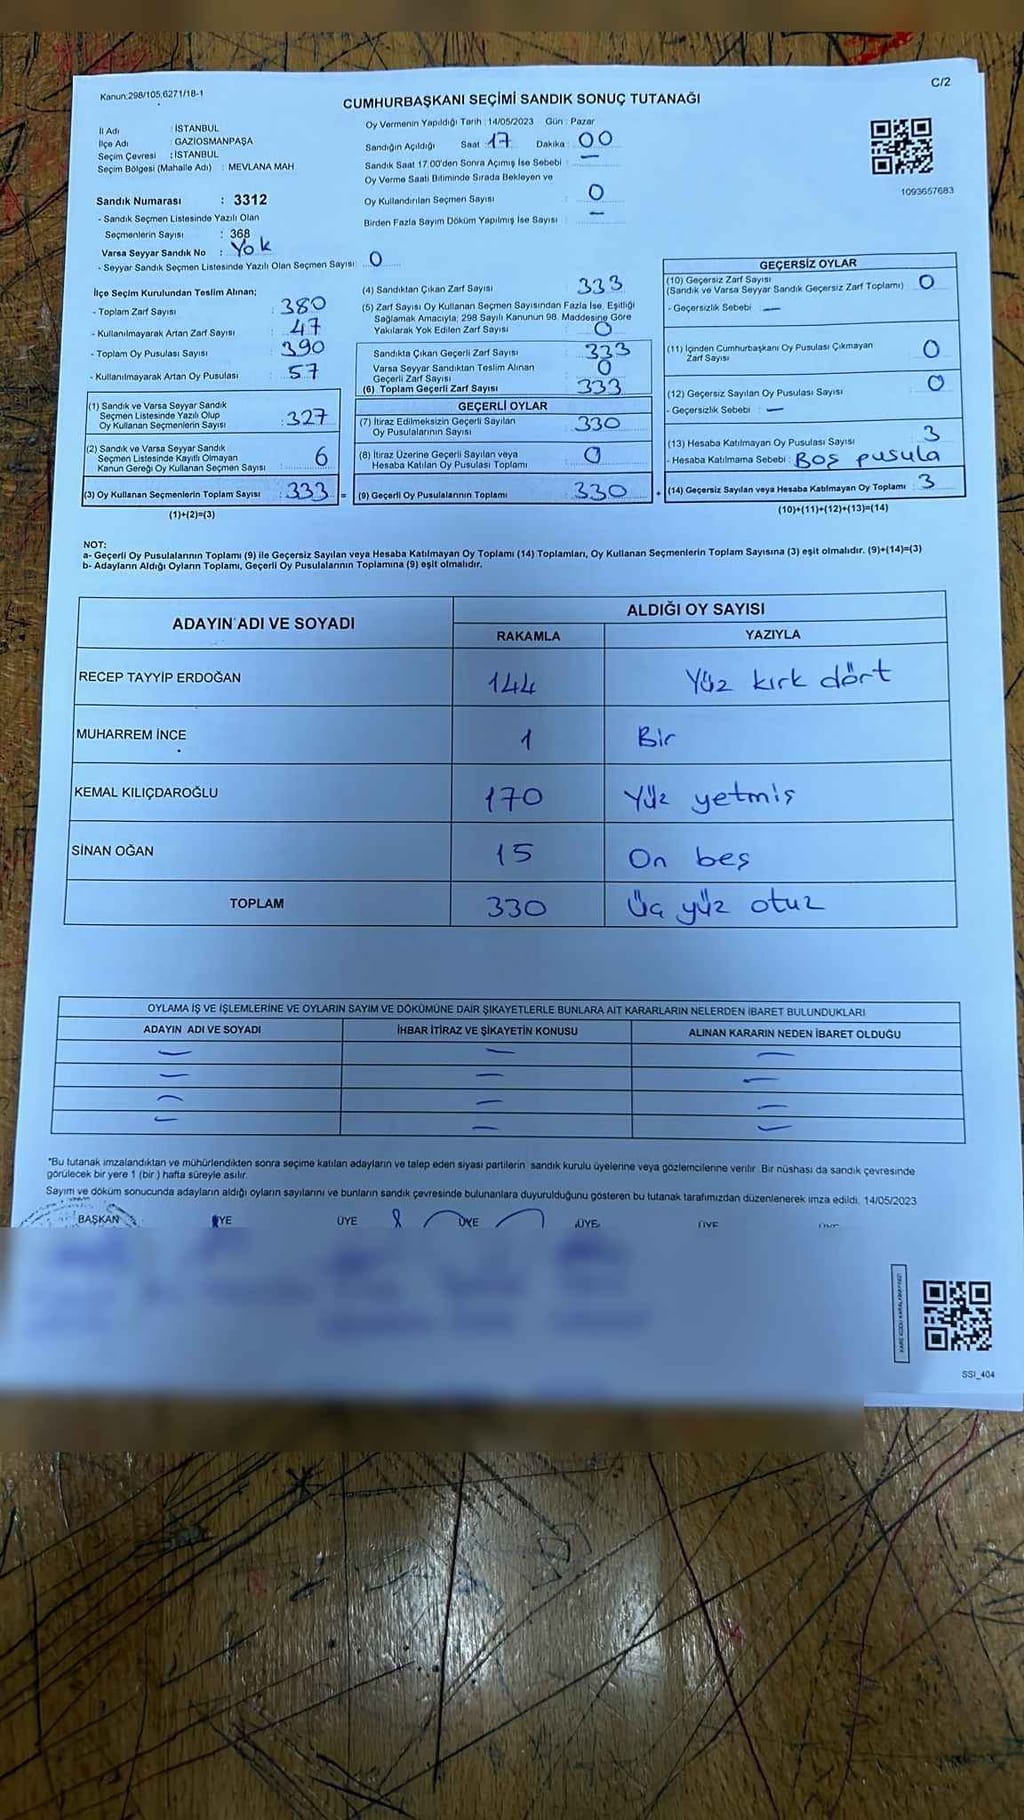 Kanun;298/105,6271/18-1
C/2
CUMHURBAŞKANI SEÇİMİ SANDIK SONUÇ TUTANAĞI
İl Adı : İSTANBUL
İlçe Adı : GAZİOSMANPAŞA
Seçim Çevresi : İSTANBUL
Seçim Bölgesi (Mahalle Adı) : MEVLANA MAH
Sandık Numarası : 3312
- Sandık Seçmen Listesinde Yazılı Olan
Seçmenlerin Sayısı : 368
Varsa Seyyar Sandık No : Yok
- Seyyar Sandık Seçmen Listesinde Yazılı Olan Seçmen Sayısı: 0
Oy Vermenin Yapıldığı Tarih : 14/05/2023 Gün : Pazar
Sandığın Açıldığı Saat : 17 Dakika : 00
Sandık Saat 17.00'den Sonra Açımış İse Sebebi : —
Oy Verme Saati Bitiminde Sırada Bekleyen ve
Oy Kullandırılan Seçmen Sayısı : 0
Birden Fazla Sayım Döküm Yapılmış İse Sayısı : —
1093657683
İlçe Seçim Kurulundan Teslim Alınan;
- Toplam Zarf Sayısı : 380
- Kullanılmayarak Artan Zarf Sayısı : 47
- Toplam Oy Pusulası Sayısı : 390
- Kullanılmayarak Artan Oy Pusulası : 57
(1) Sandık ve Varsa Seyyar Sandık
Seçmen Listesinde Yazılı Olup
Oy Kullanan Seçmenlerin Sayısı : 327
(2) Sandık ve Varsa Seyyar Sandık
Seçmen Listesinde Kayıtlı Olmayan
Kanun Gereği Oy Kullanan Seçmen Sayısı : 6
(3) Oy Kullanan Seçmenlerin Toplam Sayısı : 333 =
(1)+(2)=(3)
(4) Sandıktan Çıkan Zarf Sayısı : 333
(5) Zarf Sayısı Oy Kullanan Seçmen Sayısından Fazla İse, Eşitliği
Sağlamak Amacıyla; 298 Sayılı Kanunun 98. Maddesine Göre
Yakılarak Yok Edilen Zarf Sayısı : 0
Sandıkta Çıkan Geçerli Zarf Sayısı : 333
Varsa Seyyar Sandıktan Teslim Alınan
Geçerli Zarf Sayısı : 0
(6) Toplam Geçerli Zarf Sayısı : 333
GEÇERLİ OYLAR
(7) İtiraz Edilmeksizin Geçerli Sayılan
Oy Pusulalarının Sayısı : 330
(8) İtiraz Üzerine Geçerli Sayılan veya
Hesaba Katılan Oy Pusulası Toplamı : 0
(9) Geçerli Oy Pusulalarının Toplamı : 330 +
GEÇERSİZ OYLAR
(10) Geçersiz Zarf Sayısı
(Sandık ve Varsa Seyyar Sandık Geçersiz Zarf Toplamı) : 0
- Geçersizlik Sebebi : —
(11) İçinden Cumhurbaşkanı Oy Pusulası Çıkmayan
Zarf Sayısı : 0
(12) Geçersiz Sayılan Oy Pusulası Sayısı : 0
- Geçersizlik Sebebi : —
(13) Hesaba Katılmayan Oy Pusulası Sayısı : 3
- Hesaba Katılmama Sebebi : Boş pusula
(14) Geçersiz Sayılan veya Hesaba Katılmayan Oy Toplamı : 3
(10)+(11)+(12)+(13)=(14)
NOT:
a- Geçerli Oy Pusulalarının Toplamı (9) ile Geçersiz Sayılan veya Hesaba Katılmayan Oy Toplamı (14) Toplamları, Oy Kullanan Seçmenlerin Toplam Sayısına (3) eşit olmalıdır. (9)+(14)=(3)
b- Adayların Aldığı Oyların Toplamı, Geçerli Oy Pusulalarının Toplamına (9) eşit olmalıdır.
ADAYIN ADI VE SOYADI ALDIĞI OY SAYISI
RAKAMLA YAZIYLA
RECEP TAYYİP ERDOĞAN 144 Yüz kırk dört
MUHARREM İNCE 1 Bir
KEMAL KILIÇDAROĞLU 170 Yüz yetmiş
SİNAN OĞAN 15 On beş
TOPLAM 330 Üç yüz otuz
OYLAMA İŞ VE İŞLEMLERİNE VE OYLARIN SAYIM VE DÖKÜMÜNE DAİR ŞİKAYETLERLE BUNLARA AİT KARARLARIN NELERDEN İBARET BULUNDUKLARI
ADAYIN ADI VE SOYADI İHBAR İTİRAZ VE ŞİKAYETİN KONUSU ALINAN KARARIN NEDEN İBARET OLDUĞU
*Bu tutanak imzalandıktan ve mühürlendikten sonra seçime katılan adayların ve talep eden siyasi partilerin sandık kurulu üyelerine veya gözlemcilerine verilir. Bir nüshası da sandık çevresinde
görülecek bir yere 1 (bir ) hafta süreyle asılır.
Sayım ve döküm sonucunda adayların aldığı oyların sayılarını ve bunların sandık çevresinde bulunanlara duyurulduğunu gösteren bu tutanak tarafımızdan düzenlenerek imza edildi. 14/05/2023
BAŞKAN ÜYE ÜYE ÜYE ÜYE ÜYE ÜYE
SSI_404